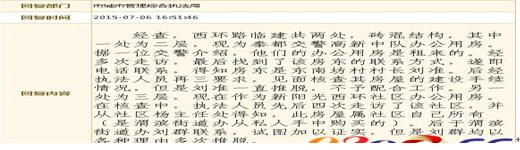 回复部门 市城市管理综合执法局
回复时间 2015-07-06 16:51:46
回复内容
经查，西环路临建共两处，砖混结构。其中
一处为二层，现为秦都交警高新中队办公用房，
据一位交警介绍，他们的办公用房是租来的。经
多次走访，最后找到了该房东的联系方式，遂即
电话联系，得知房东是东南坊村村长刘准，后经
执法人员再三要求，见面核查其房屋的建设手续
情况，但是刘准一直推脱，不予配合工作。另一
处为三层，现在作为新阳光西环社区办公用房，
在核查中，执法人员先后四次走访了该社区，并
从社区杨主任处得知，此房屋属社区自己所有
（是渭滨街道办从私人手中购买的）。后于渭滨
街道办刘群联系，试图加以证实，但是刘群均以
各种理由多次推脱。